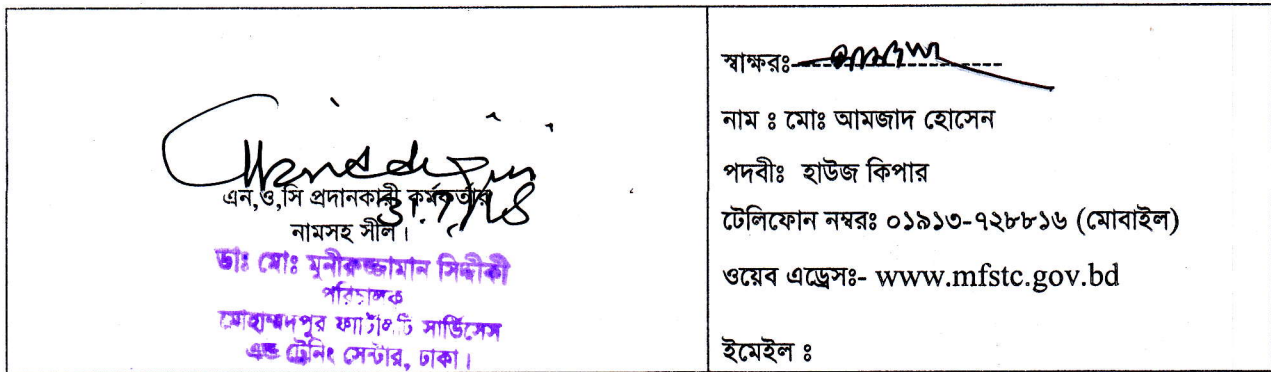 এন,ও,সি প্রদানকারী কর্মকর্তার
31.7.18
নামসহ সীল।
ডাঃ মোঃ মুনীরুজ্জামান সিদ্দীকী
পরিচালক
মোহাম্মদপুর ফার্টিলিটি সার্ভিসেস
এন্ড ট্রেনিং সেন্টার, ঢাকা।
স্বাক্ষরঃ-
নাম ঃ মোঃ আমজাদ হোসেন
পদবীঃ হাউজ কিপার
টেলিফোন নম্বরঃ ০১৯১৩-৭২৮৮১৬ (মোবাইল)
ওয়েব এড্রেসঃ- www.mfstc.gov.bd
ইমেইল ঃ